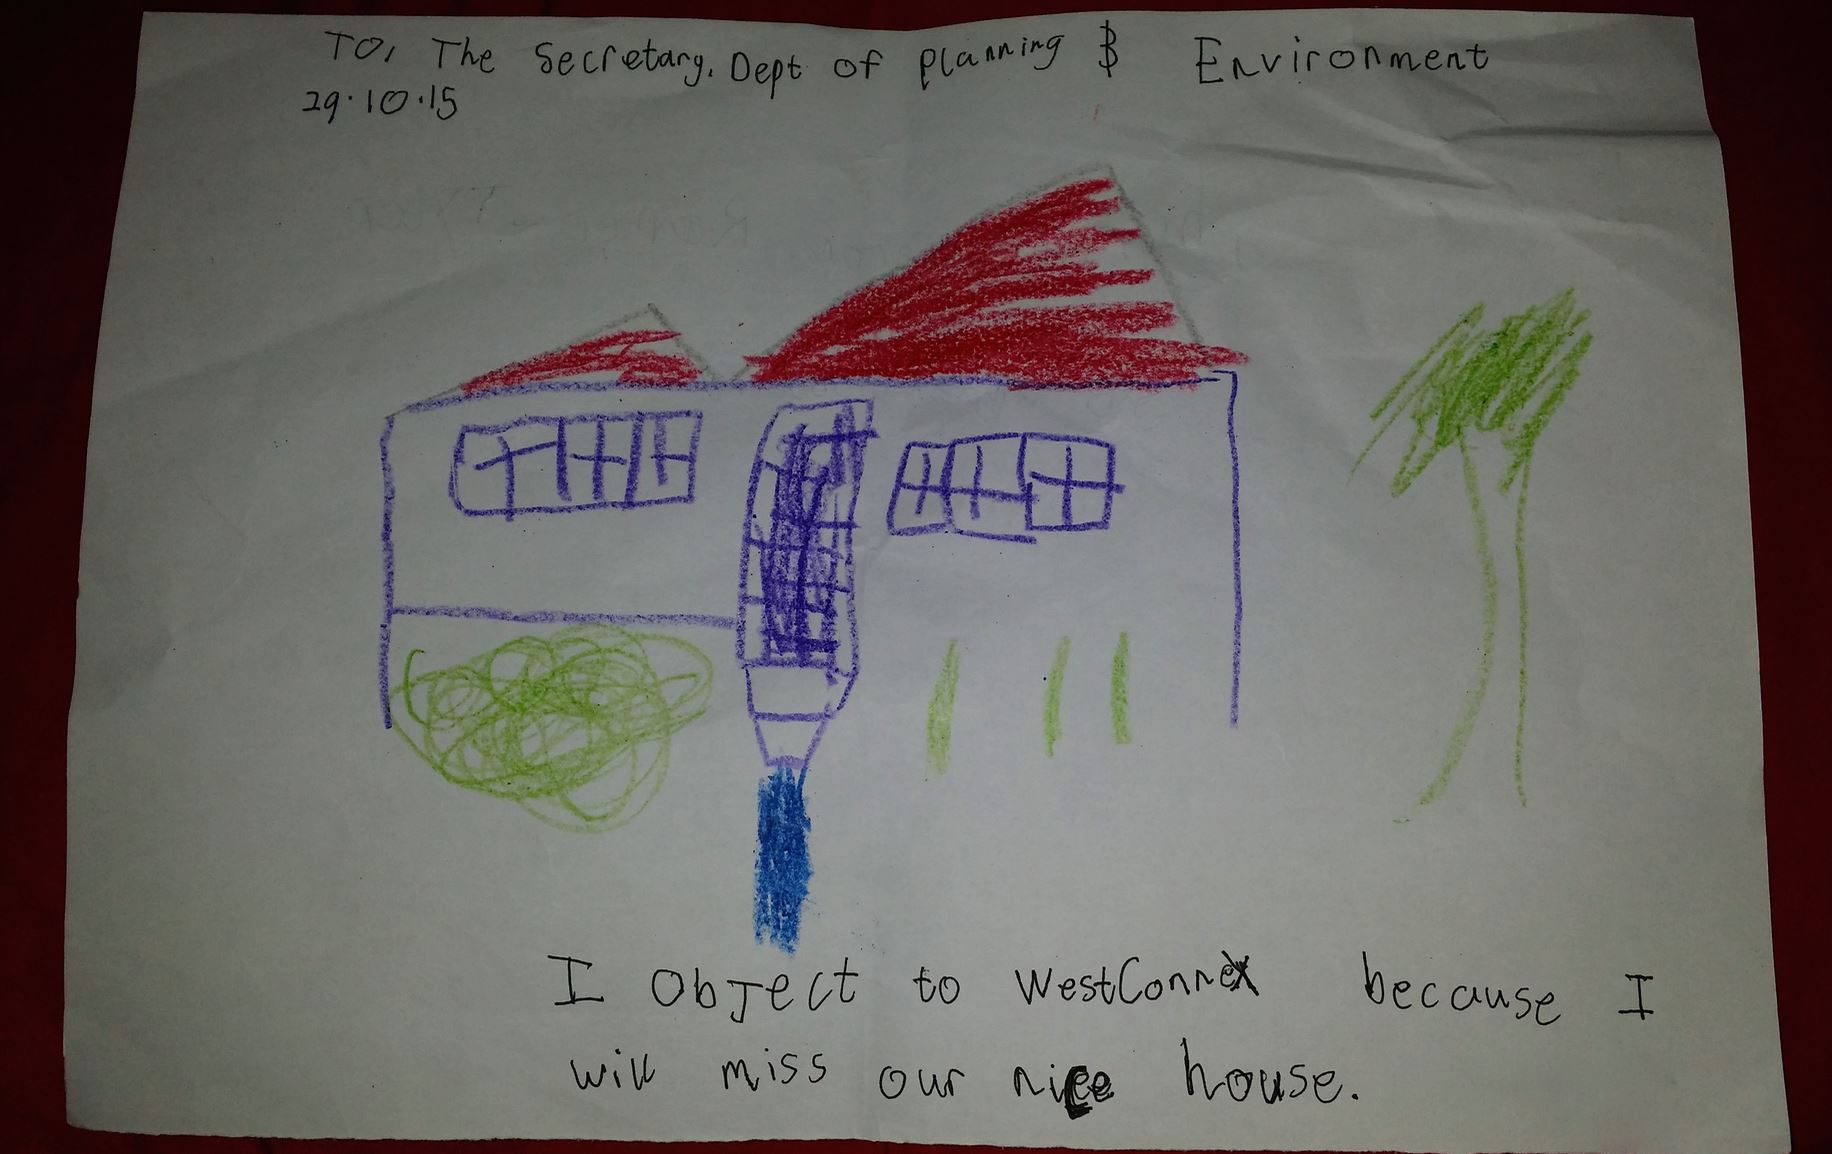 TO, The Secretary. Dept of planning & Environment
29.10.15
I Object to WestConnex because I
will miss our nice house.